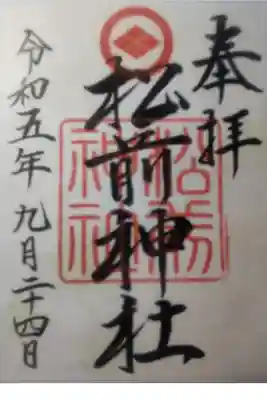 奉拝
松前神社
松前神社
令和五年九月二十四日